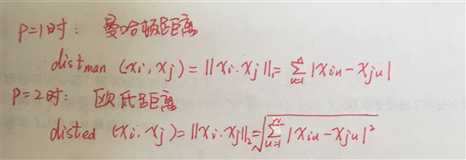 P=1时: 曼哈顿距离
distman (xi,xj) = ||xi.xj||₁ = ∑ᵤ₌₁ⁿ |xiu-xju|
P=2时: 欧氏距离
disted (xi.xj) = ||xi.xj||₂ = √∑ᵤ₌₁ⁿ |xiu-xju|²